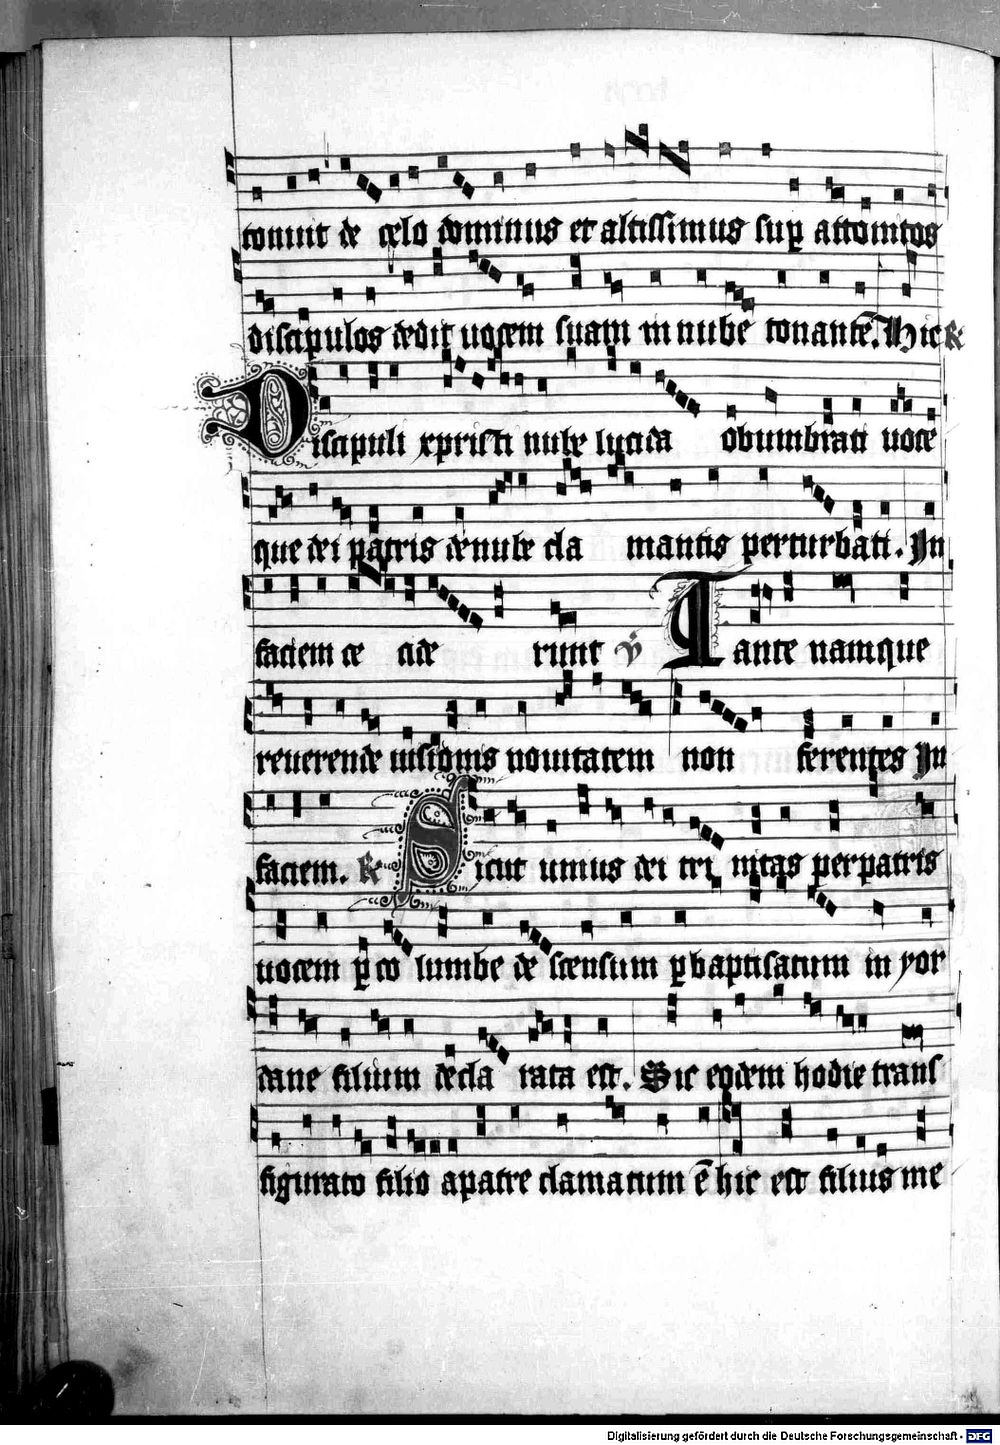 tonuit de celo dominus et altissimus sup attonitos
discipulos dedit uocem suam in nube tonantē. Hic
Discipuli xpristi nube lucida obumbrati uoce
que dei patris de nube cla mantis perturbati. In
faciem ce cide runt Tante namque
reuerende uisionis nouitatem non ferentes In
faciem. Sicut unius dei tri nitas per patris
uocem p co lumbe de scensum p baptisatum in yor
dane filium decla rata est. Sic eodem hodie trans
figurato filio a patre clamatum ē hic est filius me
Digitalisierung gefördert durch die Deutsche Forschungsgemeinschaft - DFG